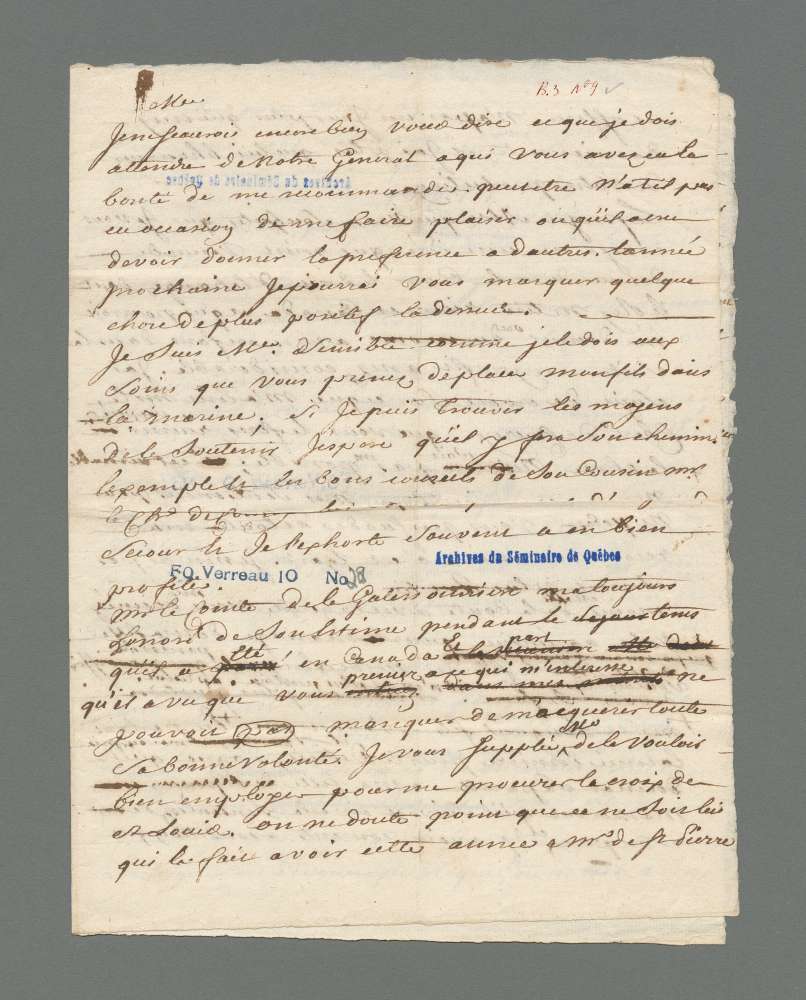 B.3 N° 9
Mr
Je ne scaurois encore bien vous dire ce que je dois
attendre de Notre General a qui vous avez eu la
Archives du Séminaire de Québec
bonté de me recommander. peutetre n'a t'il pas
eu occasion de me faire plaisir ou qu'il a cru
devoir donner la preference a d'autres. Lannée
prochaine Je pourrai vous marquer quelque
chose de plus positif la dessus.
Je Suis Mr. Sensible comme je le dois aux
Soins que vous prenez de placer mon fils dans
la marine. Si Je puis trouver les moyens
de le Soutenir J'espere qu'il y fra Son chemin
lexemple et les bons conseils de Son Cousin mr.
le Chr de
Secour et Je lexhorte Souvent a en bien
Archives du Séminaire de Québec
FO. Verreau 10 No 68
profiter.
mr le Comte de la Galissonniere ma toujours
honoré de Son Estime pendant le tems
qu'il a été en Canada Et la part
qu'il a vu que vous preniez a ce qui m'interesse ne
pouvoit pas manquer de m'acquerir toute
Sa bonne volonté. Je vous Supplie Mr de la vouloir
bien employer pour me procurer la croix de
St Louis. on ne doute point que ce ne Soit lui
qui la fait avoir cette année a Mr. de St Pierre